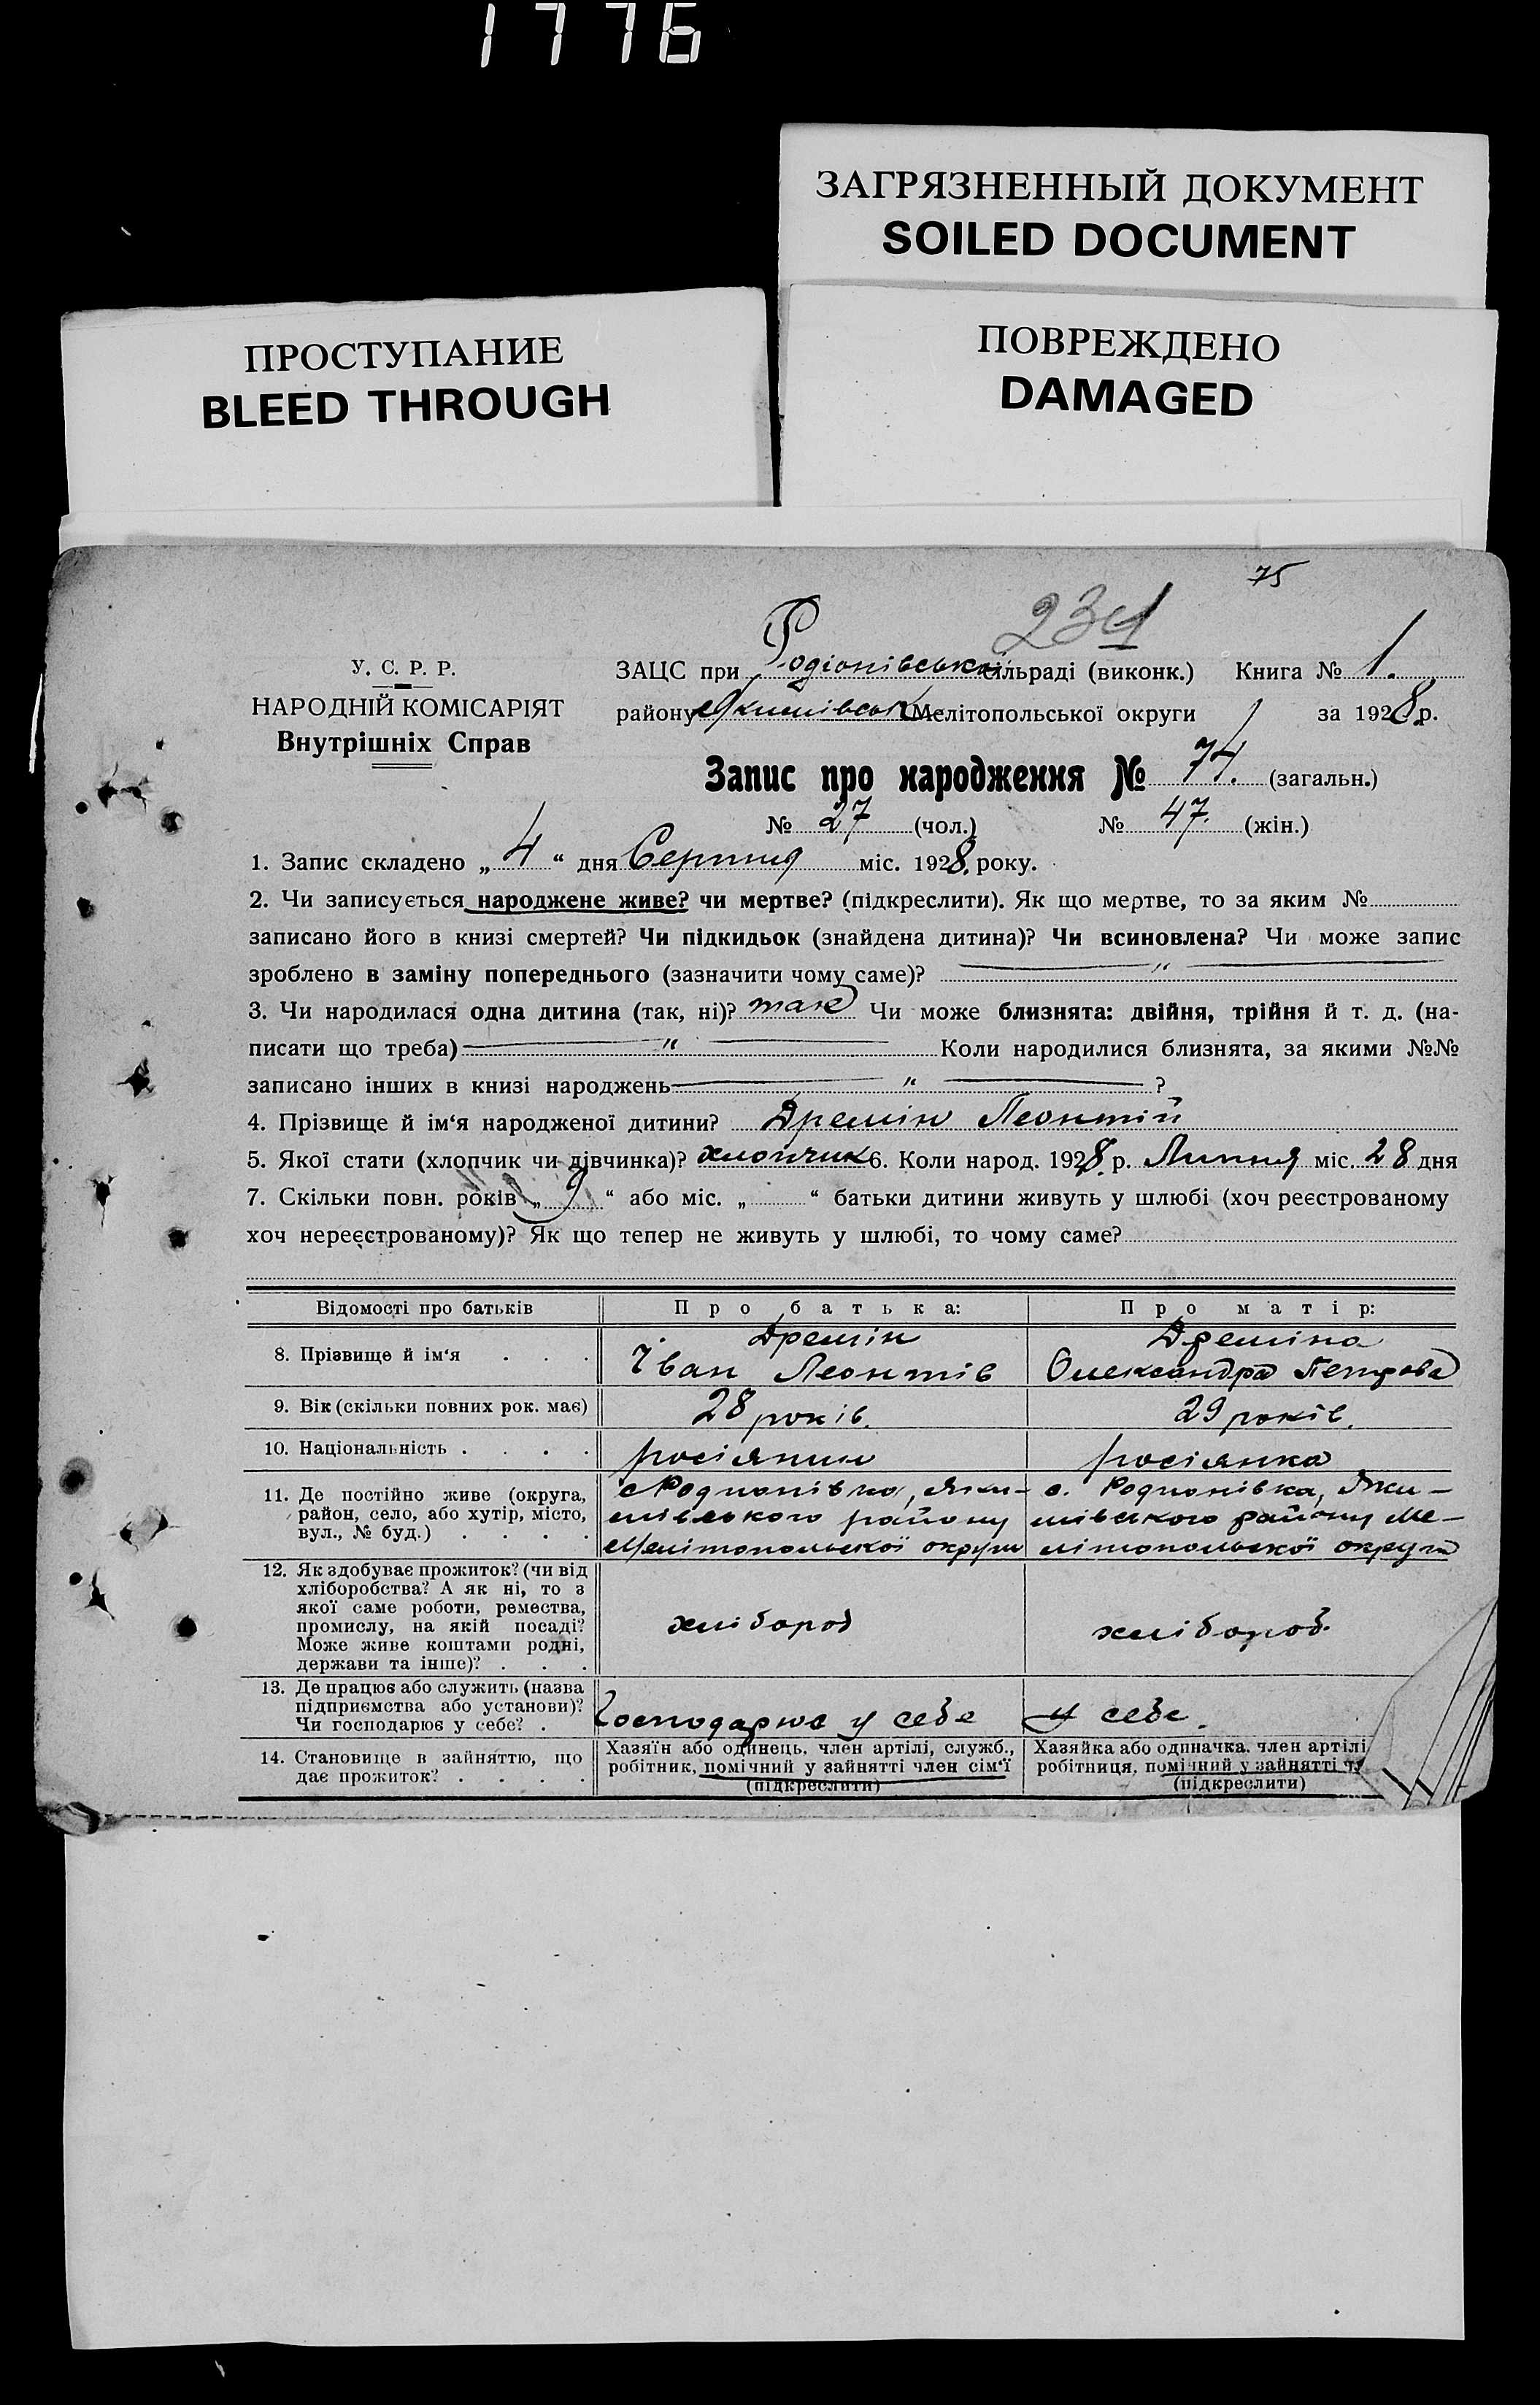 1776
ЗАГРЯЗНЕННЫЙ ДОКУМЕНТ
SOILED DOCUMENT
ПРОСТУПАНИЕ
BLEED THROUGH
ПОВРЕЖДЕНО
DAMAGED
75
У. С. Р. Р.
НАРОДНІЙ КОМІСАРІЯТ
Внутрішніх Справ
ЗАЦС при Родіонівській сільраді (виконк.) Книга № 1.
району Якимівськ Мелітопольської округи за 1928 р.
Запис про народження № 74. (загальн.)
№ 27 (чол.) № 47. (жін.)
1. Запис складено „ 4 “ дня Серпня міс. 1928. року.
2. Чи записується народжене живе? чи мертве? (підкреслити). Як що мертве, то за яким №
записано його в книзі смертей? Чи підкидьок (знайдена дитина)? Чи всиновлена? Чи може запис
зроблено в заміну попереднього (зазначити чому саме)? — " —
3. Чи народилася одна дитина (так, ні)? так Чи може близнята: двійня, трійня й т. д. (на-
писати що треба) — " — Коли народилися близнята, за якими №№
записано інших в книзі народжень — " — ?
4. Прізвище й ім‘я народженої дитини? Дремін Леонтій
5. Якої стати (хлопчик чи дівчинка)? хлопчик 6. Коли народ. 1928 р. Липня міс. 28 дня
7. Скільки повн. років „ 9 “ або міс. „ “ батьки дитини живуть у шлюбі (хоч реєстрованому
хоч нереєстрованому)? Як що тепер не живуть у шлюбі, то чому саме?
Відомості про батьків
Про батька:
Про матір:
8. Прізвище й ім‘я . . .
Дремін
Іван Леонтів
Дреміна
Олександра Петрова
9. Вік (скільки повних рок. має)
28 років.
29 років.
10. Національність . . . .
росіянин
росіянка
11. Де постійно живе (округа,
район, село, або хутір, місто,
вул., № буд.) . . . .
с Родионівка, Яки-
мівського району
Мелітопольскої округи
с. Родионівка, Яки-
мівського району Ме-
літопольскої округи
12. Як здобуває прожиток? (чи від
хліборобства? А як ні, то з
якої саме роботи, ремества,
промислу, на якій посаді?
Може живе коштами родні,
держави та інше)? . . .
хлібороб
хлібороб.
13. Де працює або служить (назва
підприємства або установи)?
Чи господарює у себе? .
Господарює у себе
у себе.
14. Становище в зайняттю, що
дає прожиток? . . . .
Хазяїн або одинець, член артілі, служб.,
робітник, помічний у зайнятті член сім‘ї
(підкреслити)
Хазяйка або одиначка, член артілі
робітниця, помічний у зайнятті
(підкреслити)